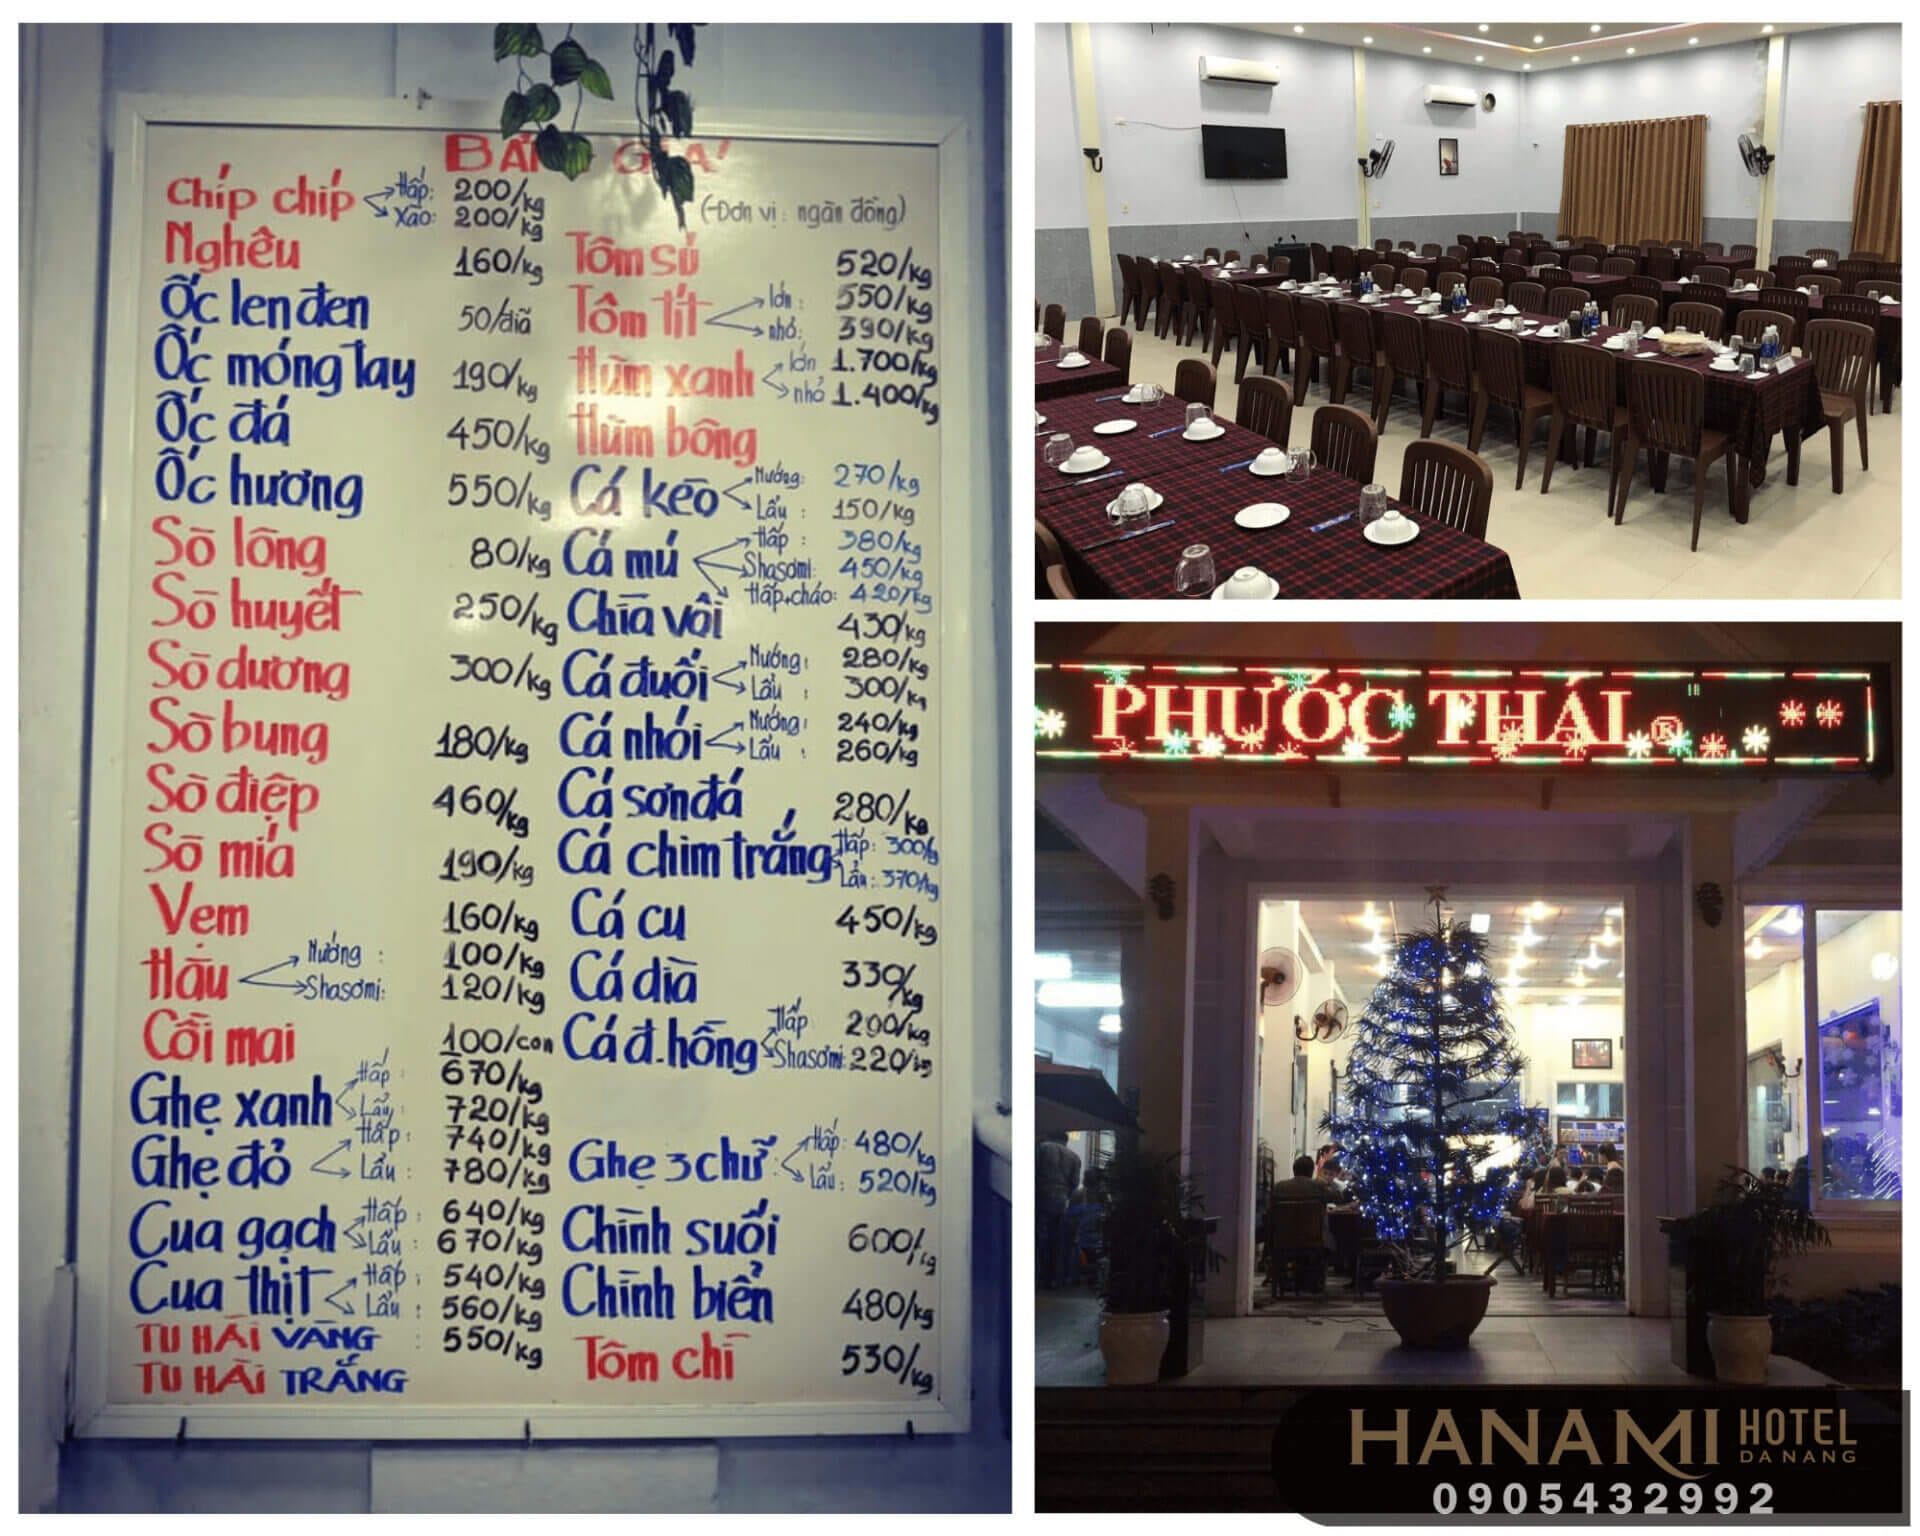 BẢN GIÁ
(Đơn vị: ngàn đồng)
Chíp chíp Hấp: 200/kg
Xào: 200/kg
Nghêu 160/kg
Ốc len đen 50/dĩa
Ốc móng tay 190/kg
Ốc đá 450/kg
Ốc hương 550/kg
Sò lông 80/kg
Sò huyết 250/kg
Sò dương 300/kg
Sò bung 180/kg
Sò điệp 460/kg
Sò mía 190/kg
Vẹm 160/kg
Hàu Nướng: 100/kg
Shasơmi: 120/kg
Cồi mai 100/con
Ghẹ xanh Hấp: 670/kg
Lẩu: 720/kg
Ghẹ đỏ Hấp: 740/kg
Lẩu: 780/kg
Cua gạch Hấp: 640/kg
Lẩu: 670/kg
Cua thịt Hấp: 540/kg
Lẩu: 560/kg
TU HÀI VÀNG : 550/kg
TU HÀI TRẮNG
Tôm sú 520/kg
Tôm tít lớn: 550/kg
nhỏ: 390/kg
Hùm xanh lớn 1.700/kg
nhỏ 1.400/kg
Hùm bông
Cá kèo Nướng: 270/kg
Lẩu: 150/kg
Cá mú Hấp: 380/kg
Shasơmi: 450/kg
Hấp+cháo: 420/kg
Chìa vôi 430/kg
Cá đuối Nướng: 280/kg
Lẩu: 300/kg
Cá nhói Nướng: 240/kg
Lẩu: 260/kg
Cá sơn đá 280/kg
Cá chim trắng Hấp: 300/kg
Lẩu: 370/kg
Cá cu 450/kg
Cá dìa 330/kg
Cá đ.hồng Hấp 200/kg
Shasơmi: 220/kg
Ghẹ 3 chữ Hấp: 480/kg
Lẩu: 520/kg
Chình suối 600/kg
Chình biển 480/kg
Tôm chì 530/kg
PHƯỚC THÁI ®
HANAMI HOTEL
DA NANG
0905432992